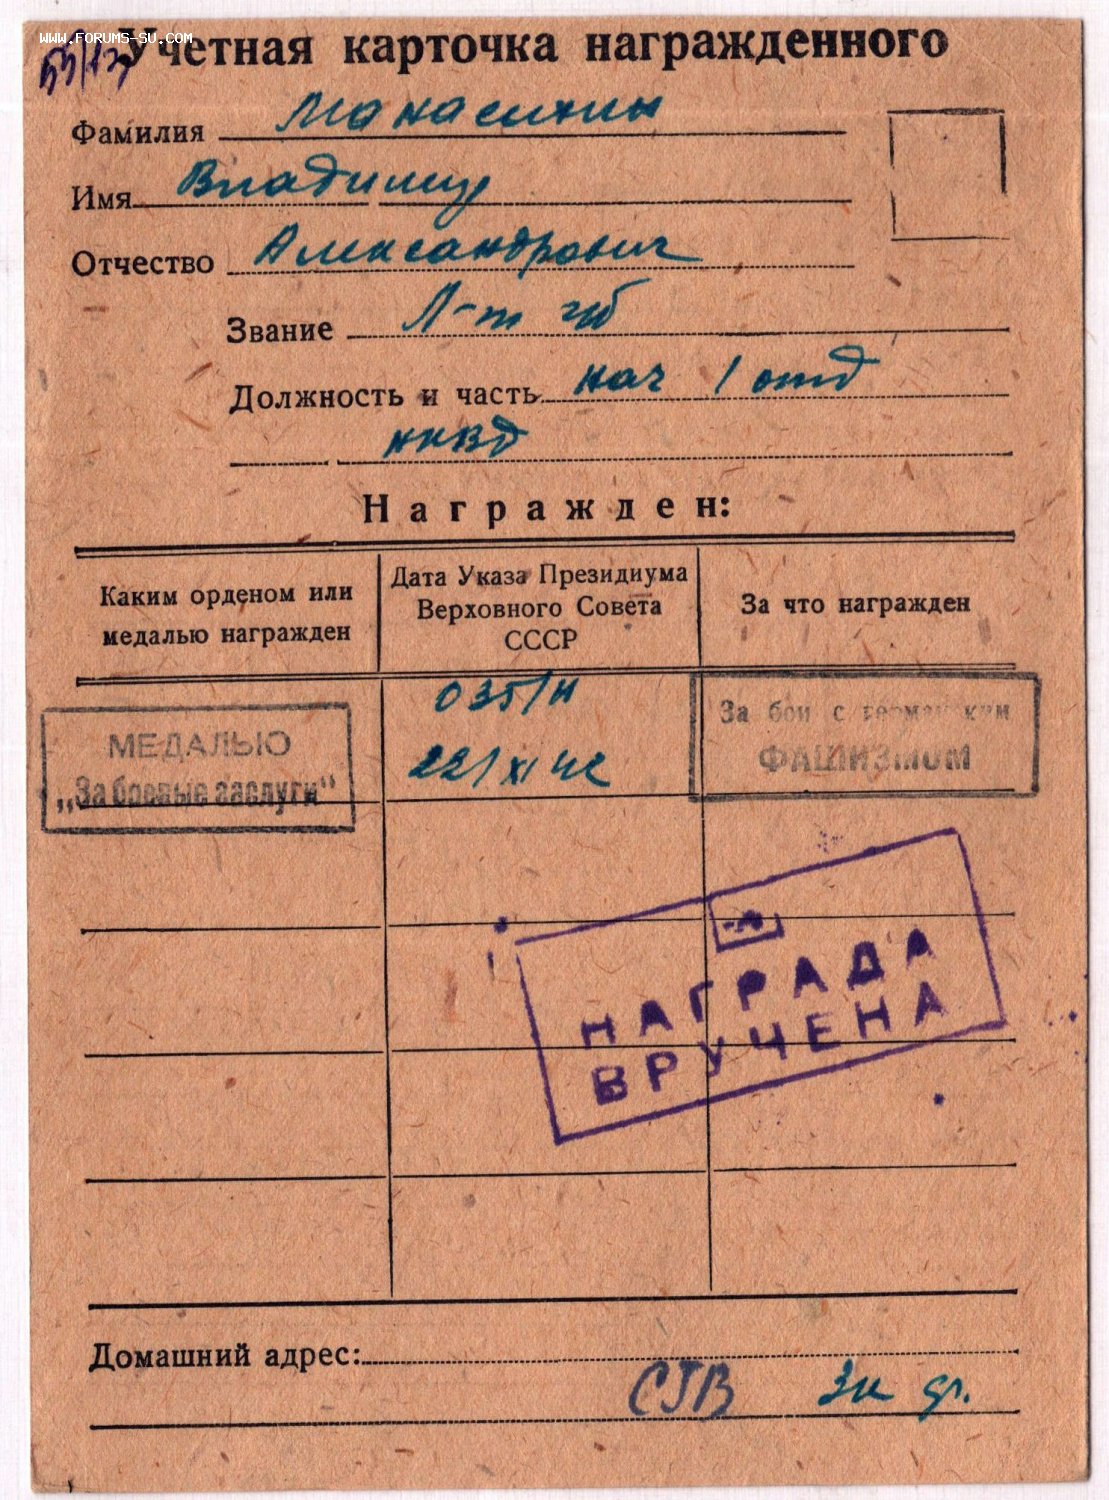 www.forums-su.com
Учетная карточка награжденного
Фамилия Манасихин
Имя Владимир
Отчество Александрович
Звание Л-т гб
Должность и часть нач 1 отд
НКВД
Награжден:
Каким орденом или медалью награжден
Дата Указа Президиума Верховного Совета СССР
За что награжден
МЕДАЛЬЮ
„За боевые заслуги“
035/н
22/XI 42
За бои с германским
ФАШИЗМОМ
НАГРАДА
ВРУЧЕНА
Домашний адрес:
СГВ